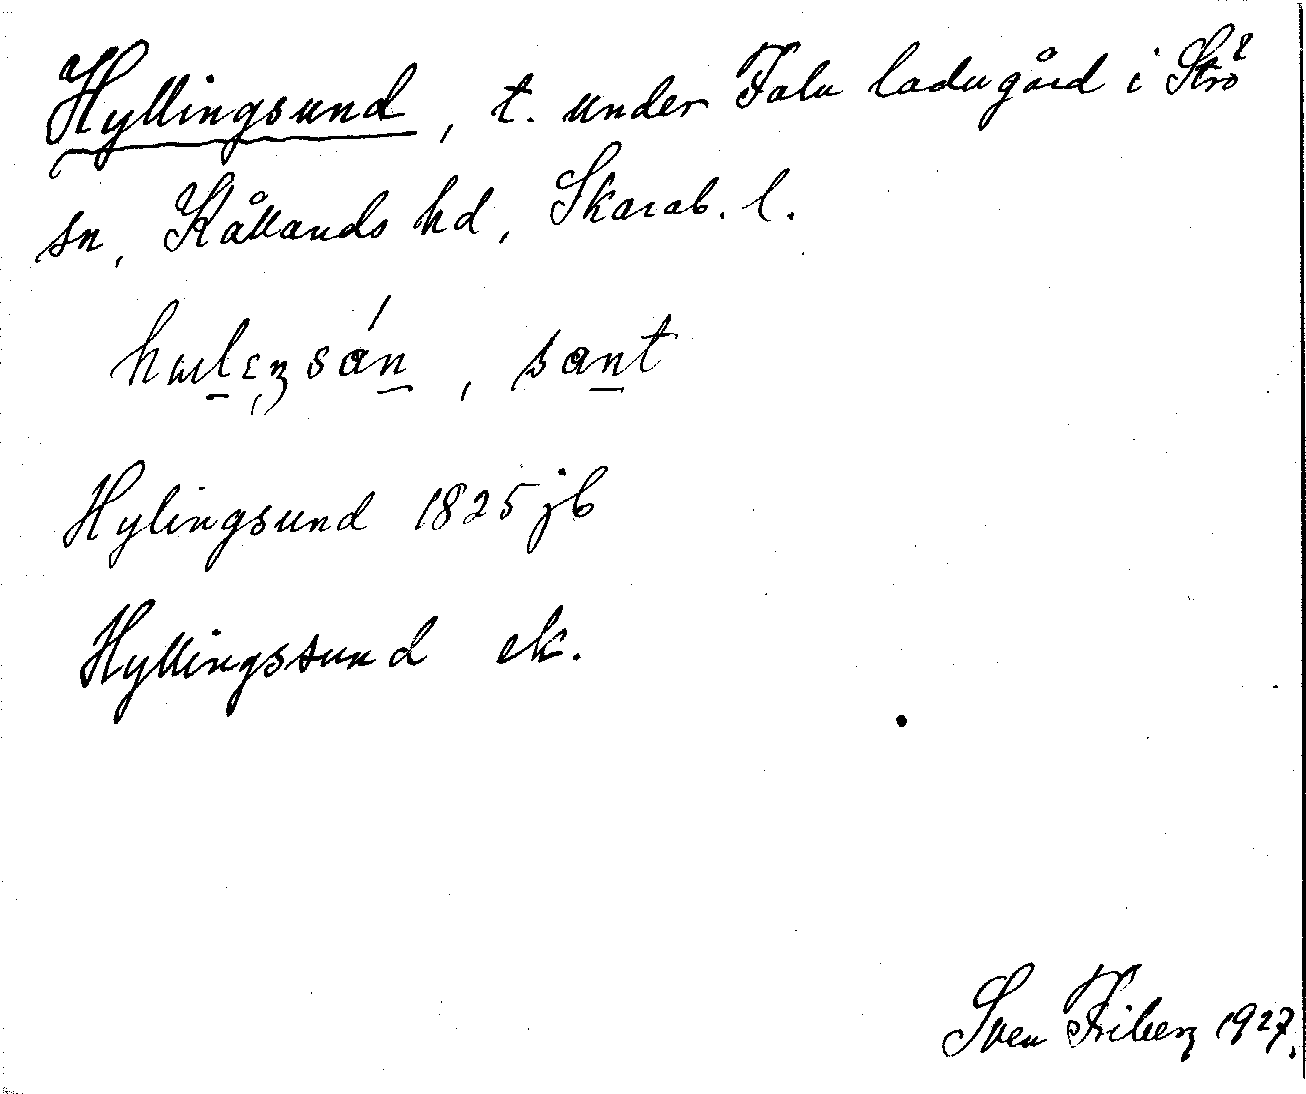 Hyllingsund, t. under Fala ladugård i Strö
sn, Kållands hd, Skarab. l.
sant
Hylingsund 1825 jb
Hyllingssund ek.
Sven Friberg 1927.